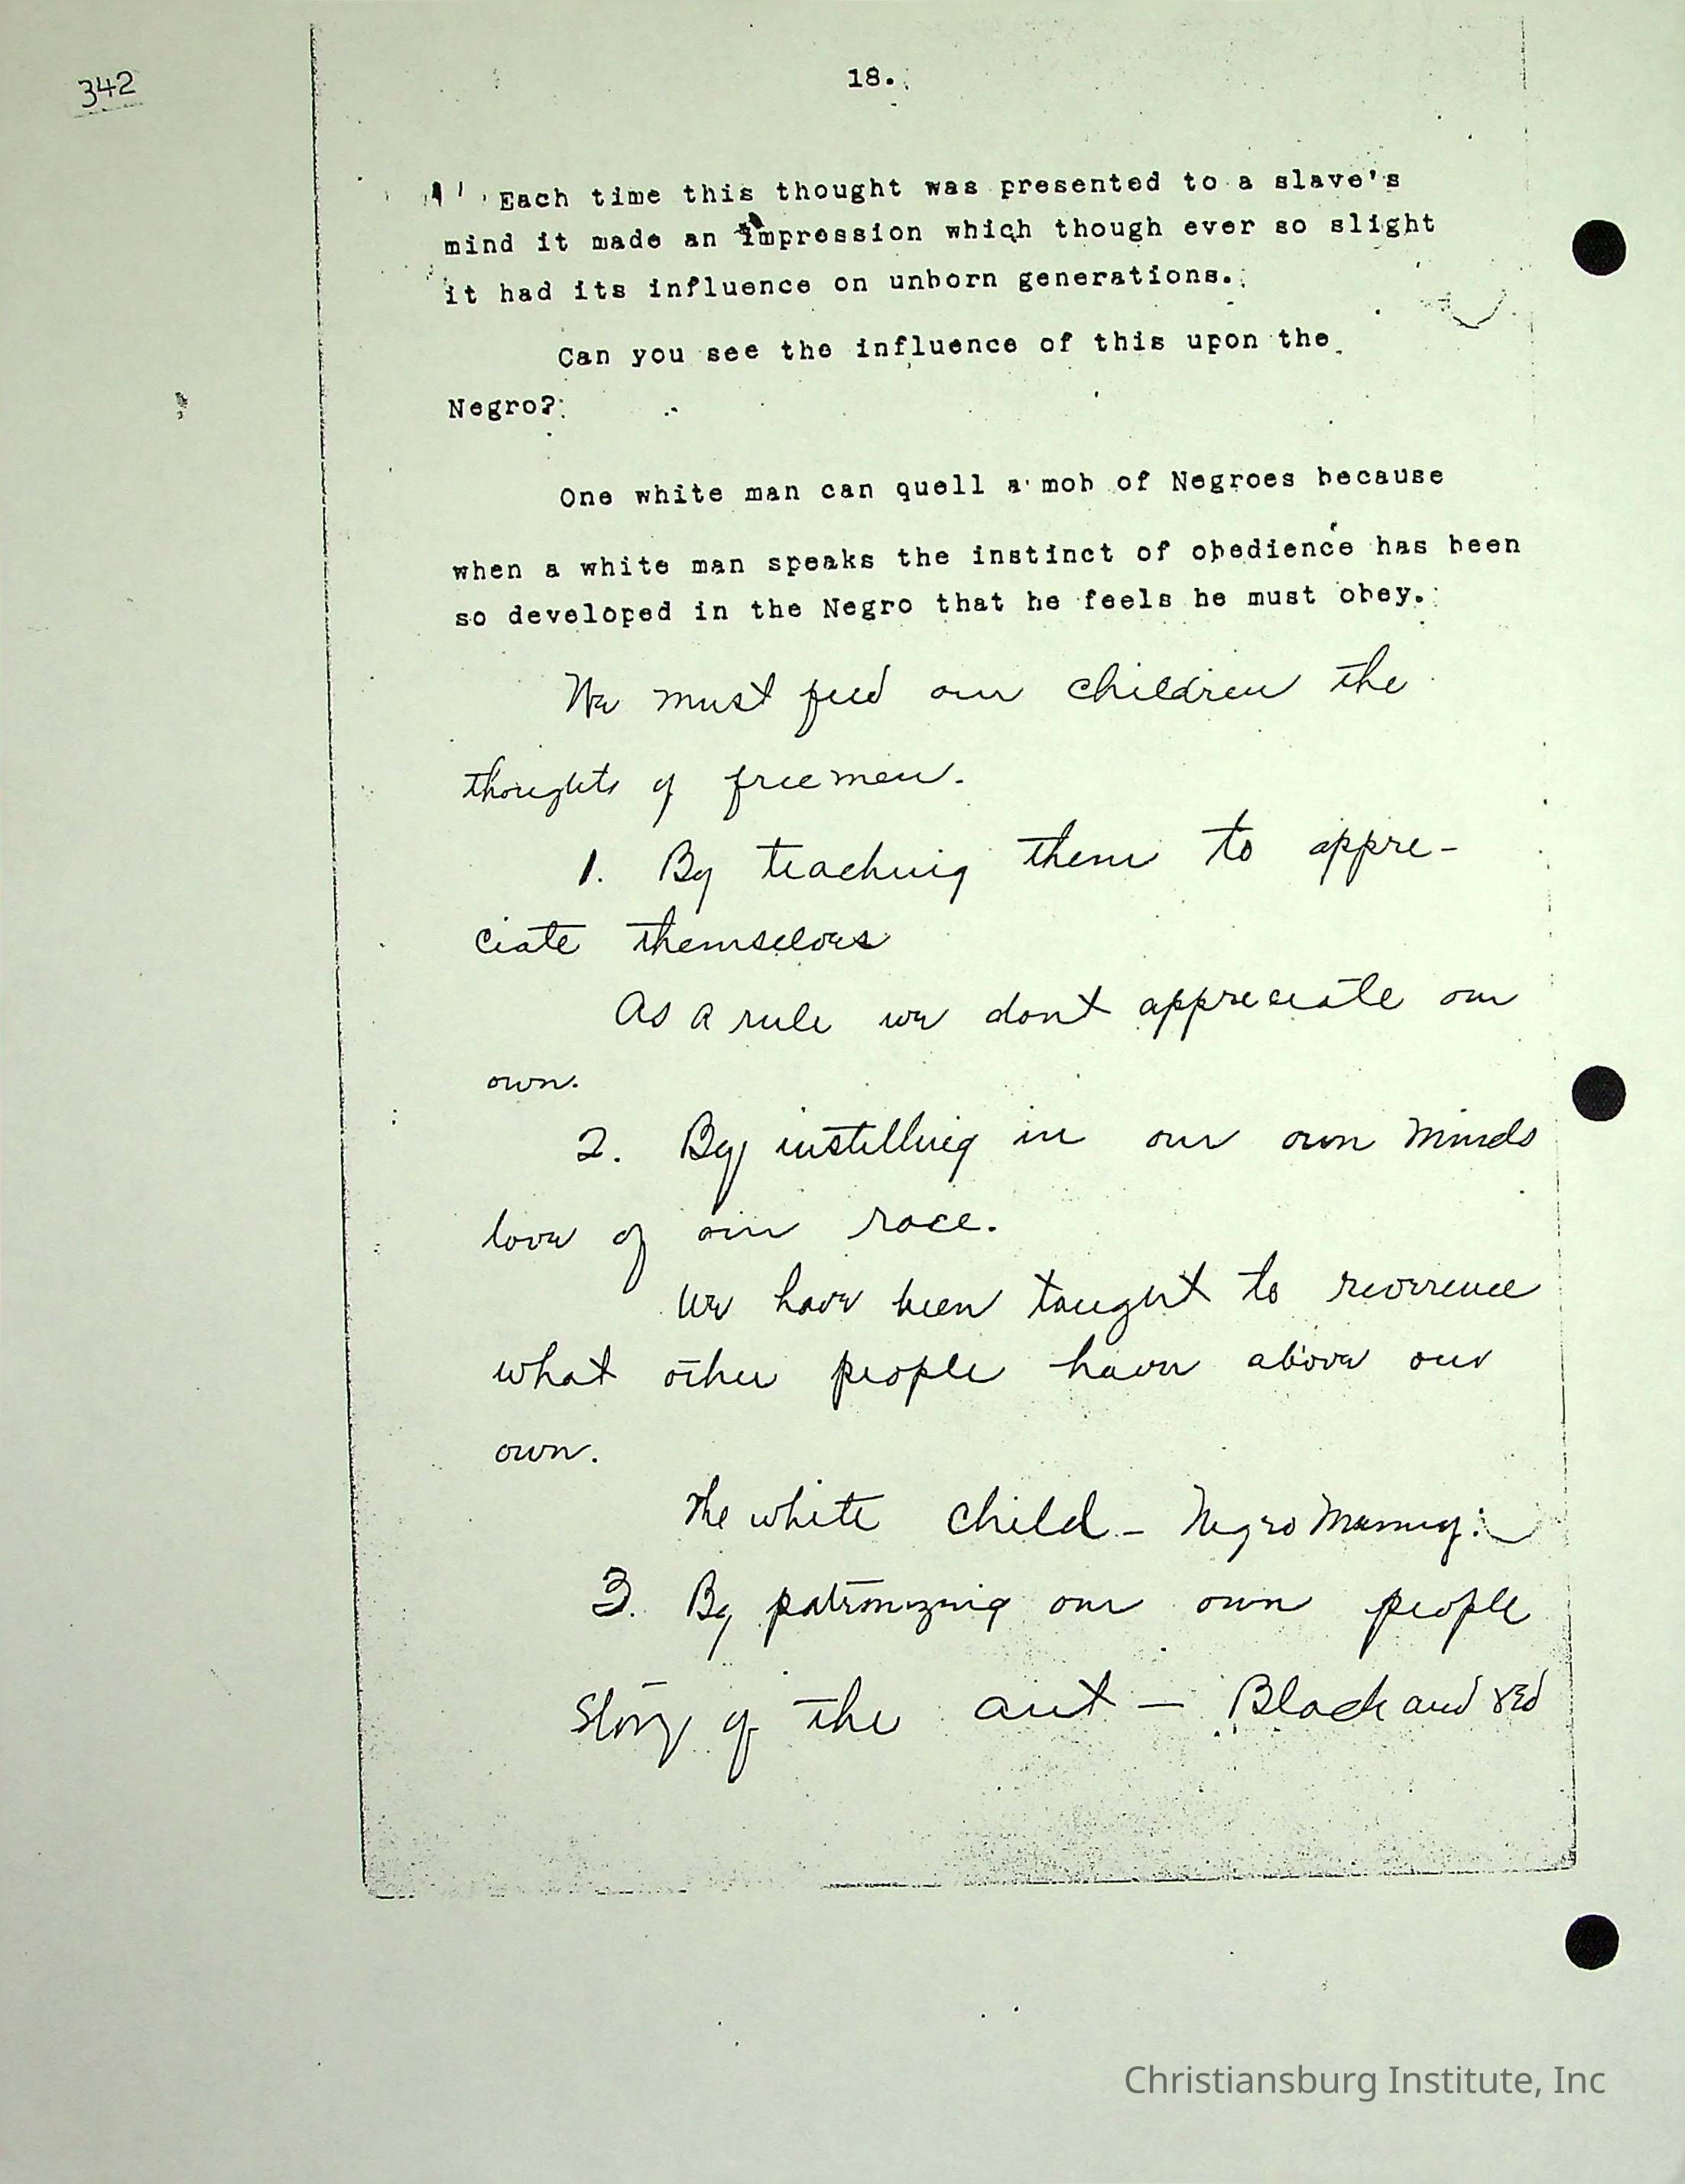 342
18.
Each time this thought was presented to a slave's
mind it made an impression which though ever so slight
it had its influence on unborn generations.
Can you see the influence of this upon the
Negro?
One white man can quell a mob of Negroes because
when a white man speaks the instinct of obedience has been
so developed in the Negro that he feels he must obey.
We must feed our children the
thoughts of free men.
1. By teaching them to appre-
ciate themselves
As a rule we dont appreciate our
own.
2. By instilling in our own minds
love of our race.
We have been taught to reverence
what other people have above our
own.
The white child - Negro Mammy.
3. By patronizing our own people
Story of the ant - Black and red
Christiansburg Institute, Inc